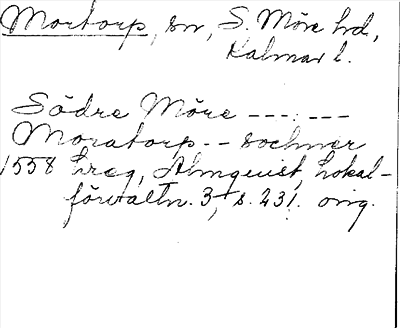 Mortorp, sn, S. Möre hd,
Kalmar l.
Södre Möre ------
Moratorp -- sochner
1558 hreg, Almquist, Lokal-
förvaltn. 3, s. 231. orig.